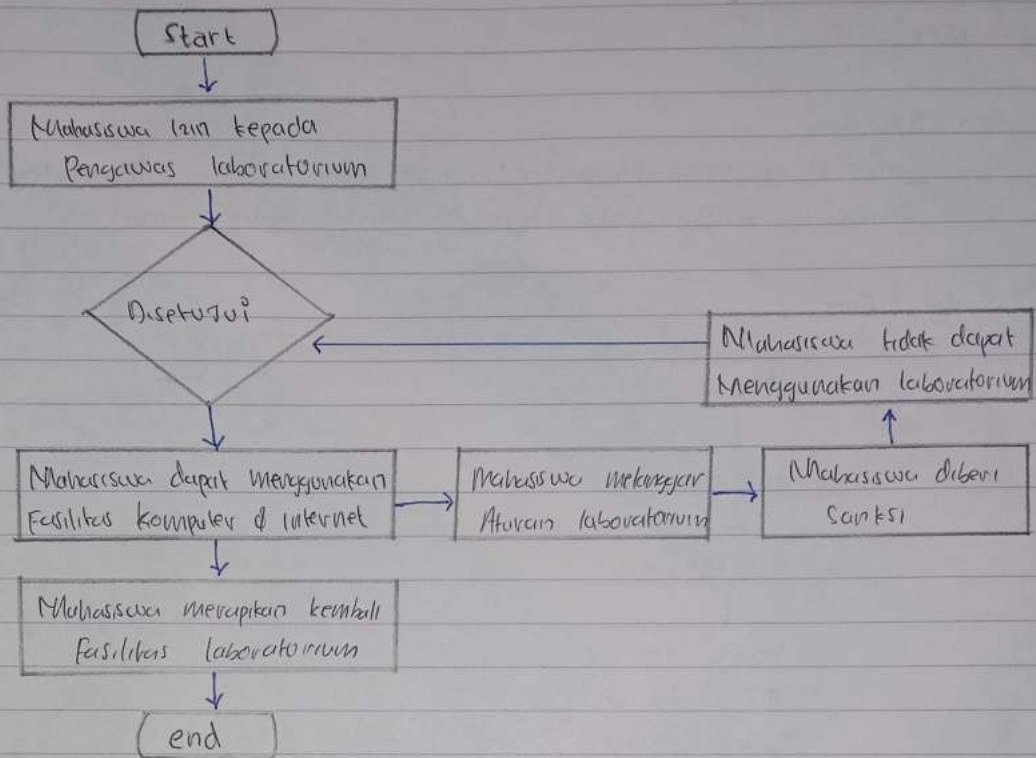 Start
Mahasiswa Izin kepada
Pengawas laboratorium
Disetujui
Mahasiswa tidak dapat
Menggunakan laboratorium
Mahasiswa dapat menggunakan
Fasilitas komputer & internet
Mahasiswa melanggar
Aturan laboratorium
Mahasiswa diberi
Sanksi
Mahasiswa merapikan kembali
Fasilitas laboratorium
end